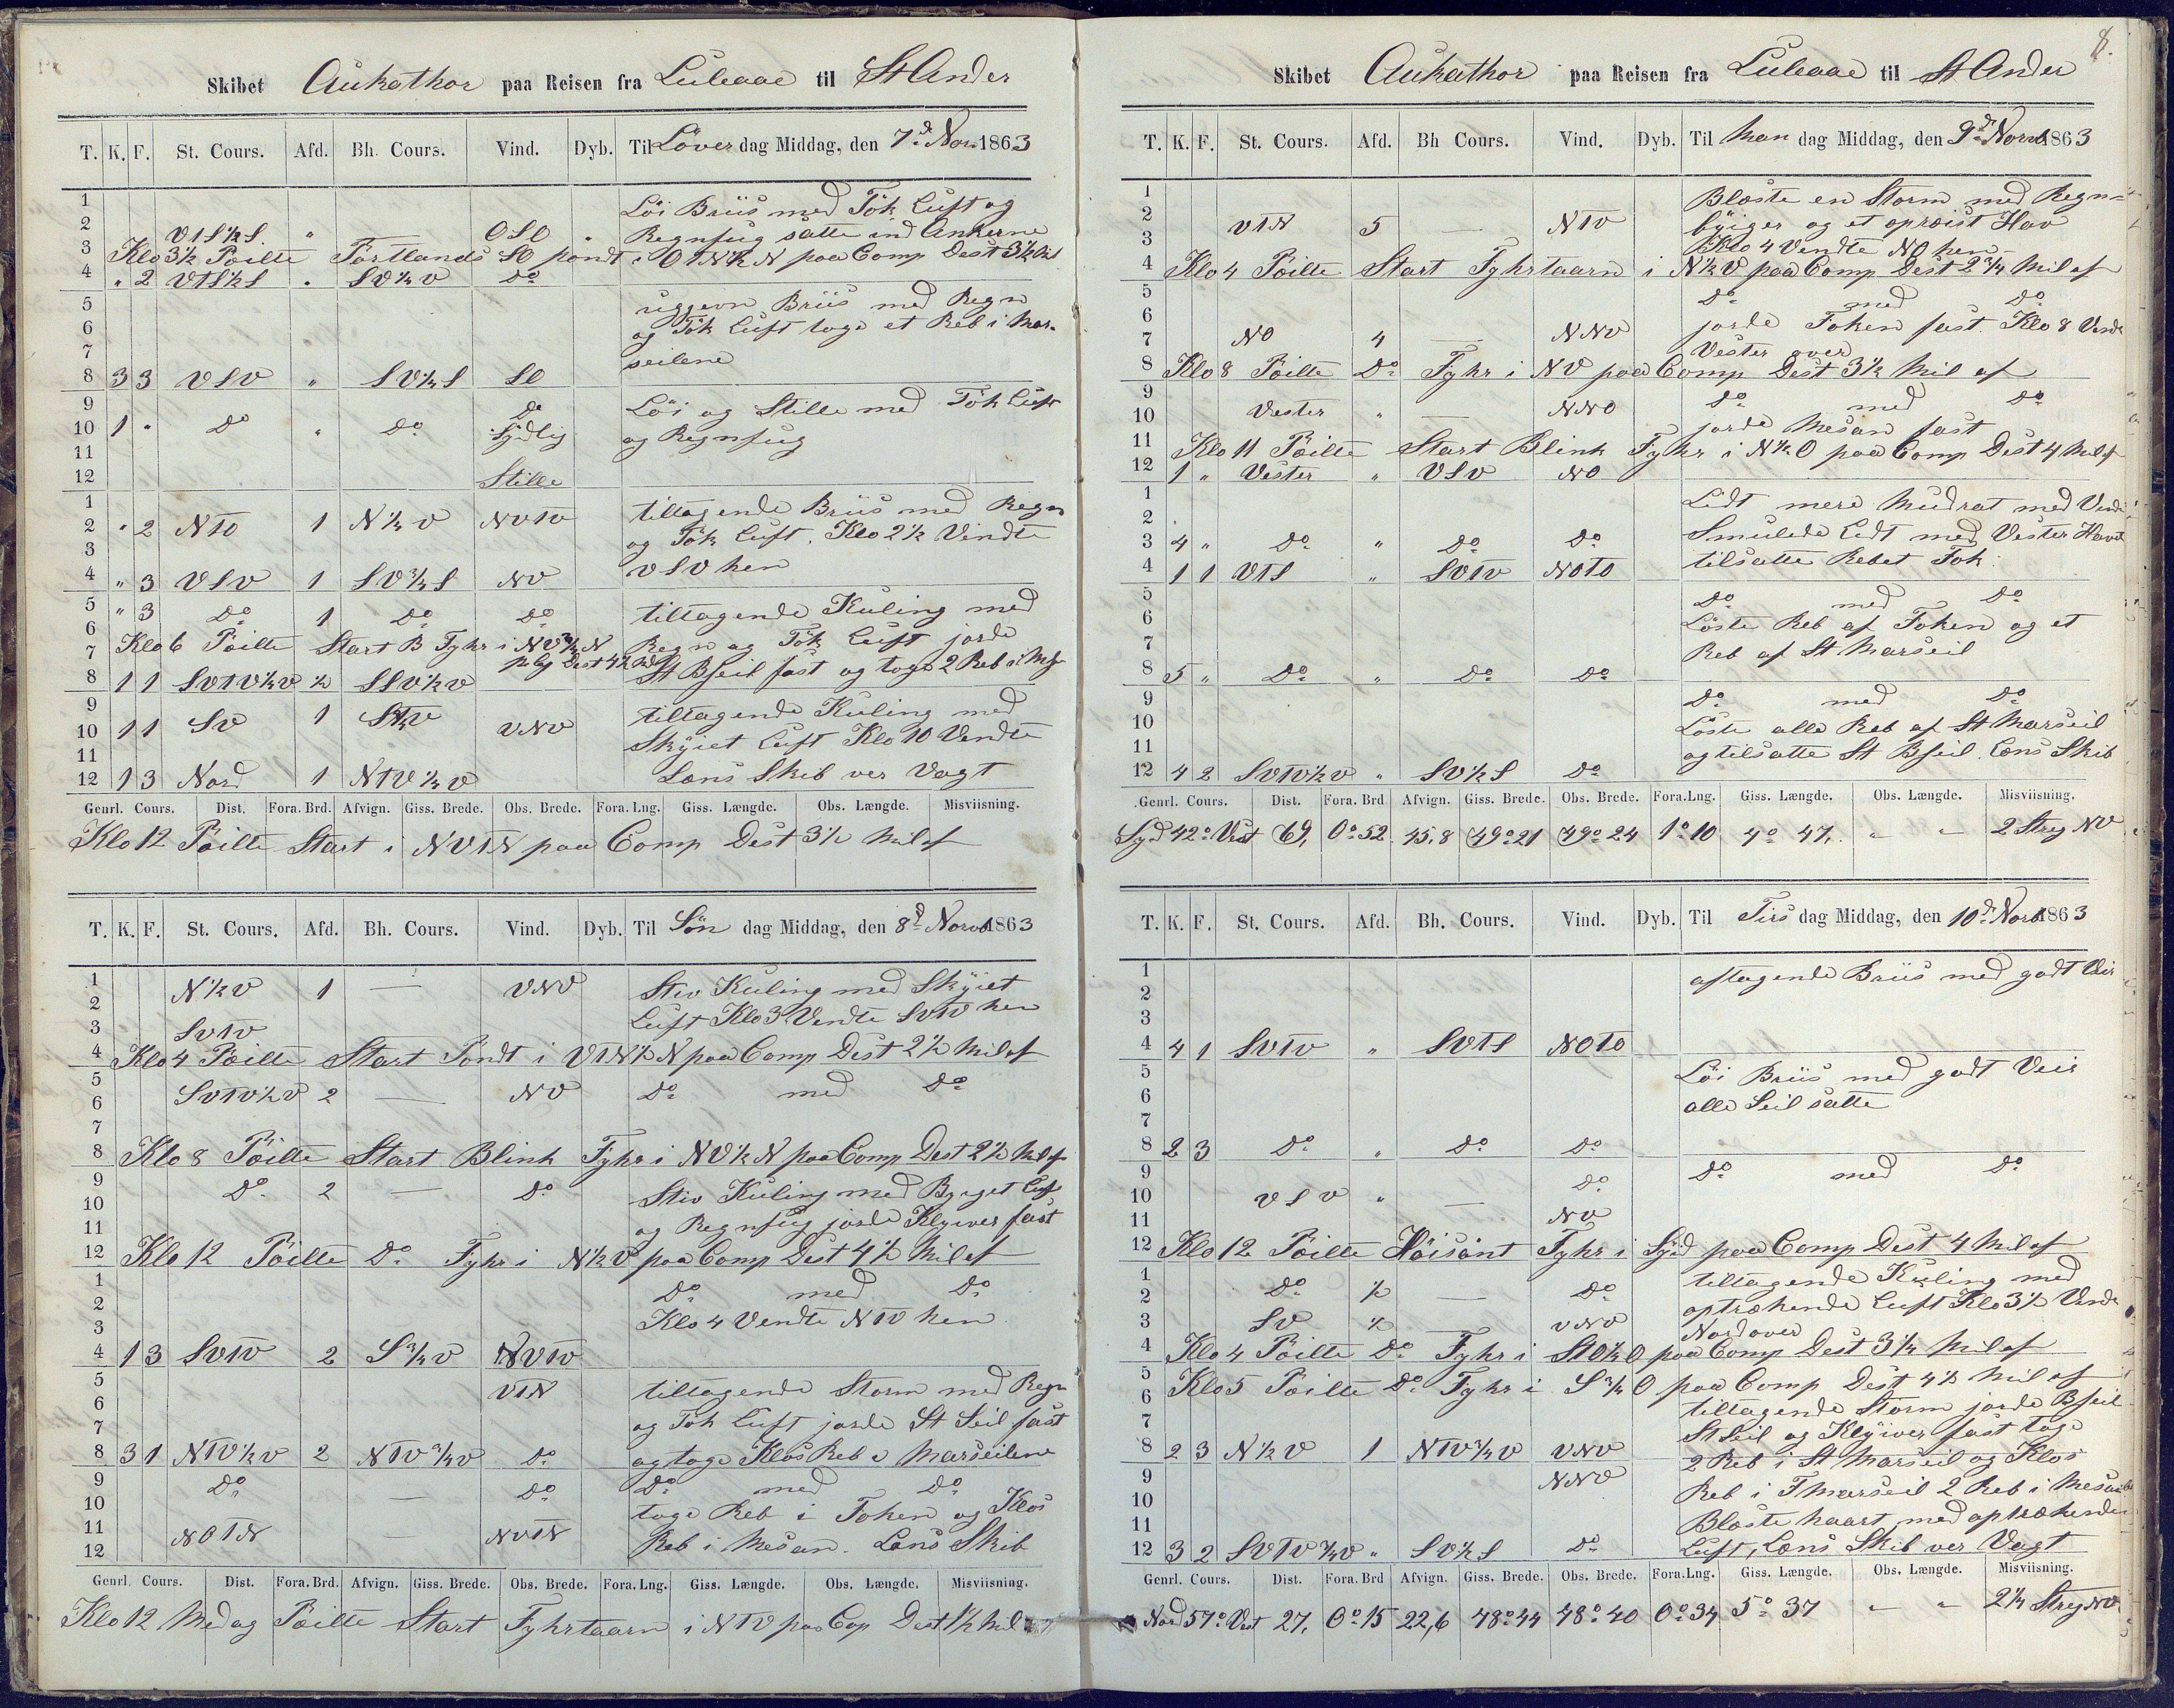 Skibet Aukathor paa Reisen fra Luleaae til St Ander
T. K. F. St. Cours. Afd. Bh. Cours. Vind. Dyb. Til Löver dag Middag, den 7d Nov. 1863
1 Löi Briis med Tök Luft og
2 VTS½S " — OSO " Regnfug satte ind Ankerne
3 Klo 3½ Pöilte Portlands SO pondt i OTN½N paa Comp Dest 3½
4 " 2 VTS½S " SV½V Do
5 uggevn Briis med Regn
6 og Tök Luft toge et Reb i Mar-
7 seilene
8 3 3 VSV " SV½S SO
9 Do Löi og Stille med Tök Luft
10 1 " Do " Do Sydlig og Regnfug
11
12 Stille
1 tiltagende Briis med Regn
2 " 2 NTO 1 N½V NVTV og Tök Luft. Klo 2½ Vendte
3 VSV hen
4 " 3 VSV 1 SV¾S NV
5 " 3 Do 1 Do Do tiltagende Kuling med
6 Klo 6 Pöilte Start B Fyhr i NV¾N Regn og Tök Luft jorde
7 Dest 4½ St Bseil fast og toge 2 Reb i
8 1 1 SVTV½V ½ SSV½V
9 tiltagende Kuling med
10 1 1 SV 1 VNV Skyiet Luft Klo 10 Vendte
11
12 1 3 Nord 1 NTV½V Læns Skib ver Vagt
Genrl. Cours. Dist. Fora. Brd. Afvign. Giss. Brede. Obs. Brede. Fora. Lng. Giss. Længde. Obs. Længde. Misviisning.
Klo 12 Pöilte Start i NVTN paa Comp Dest 3½ Mil af
T. K. F. St. Cours. Afd. Bh. Cours. Vind. Dyb. Til Sön dag Middag, den 8d Novb 1863
1 N½V 1 — VNV Stiv Kuling med Skyiet
2 Luft Klo 3 Vendte SVTV hen
3 SVTV
4 Klo 4 Pöilte Start Pondt i VTN½N paa Comp Dest 2½ Mil af
5 SVTV½V 2 — NV Do med Do
6
7
8 Klo 8 Pöilte Start Blink Fyhr i NV½N paa Comp Dest 2½ Mil af
9 Do 2 — Do Stiv Kuling med Byget Luft
10
11 og Regnfug jorde Klyver fast
12 Klo 12 Pöilte Do Fyhr i N½V paa Comp Dest 4½ Mil af
1 Do med Do
2 Klo 4 Vendte NTV hen
3
4 1 3 SVTV 2 S¾V NVTV
5 VTN tiltagende Storm med Regn
6
7 og Tök Luft jorde St Seil fast
8 3 1 NTV½V 2 NTV¾V Do og toge Klos Reb i Marseilene
9 Do — Do Do med Do
10 toge Reb i Foken og Klos
11 NOTN — NVTN Reb i Mesan. Læns Skib
12
Genrl. Cours. Dist. Fora. Brd. Afvign. Giss. Brede. Obs. Brede. Fora. Lng. Giss. Længde. Obs. Længde. Misviisning.
Klo 12 Medag Pöilte Start Fyhrtaarn i NTV paa Cop Dest 1½ Mil
8.
Skibet Aukathor paa Reisen fra Luleaae til St Ander
T. K. F. St. Cours. Afd. Bh Cours. Vind. Dyb. Til Man dag Middag, den 9d Novb 1863
1 Blæste en Storm med Regn=
2 VTN 5 — NTV byiger og et oprœist Hav
3 Klo 4 Vendte NO hen
4 Klo 4 Pöilte Start Fyhrtaarn i N½V paa Comp Dest 2¾ Mil af
5 Do med Do
6 jorde Foken fast Klo 8 Vendte
7 NO 4 — NNV Vester over
8 Klo 8 Pöilte Do Fyhr i NV paa Comp Dest 3½ Mil af
9 Do med Do
10 Vester " — NNO jorde Mesan fast
11 Klo 11 Pöilte Start Blink Fyhr i N½O paa Comp Dest 4 Mil af
12 1 " Vester " VSV NO
1 Lidt mere Mudrat med Vind
2 Smulede Lidt med Vester Havet
3 4 " Do " Do Do tilsatte Rebet Fok
4 1 1 VTS " SVTV NOTO
5 Do med Do
6 Löste Reb af Foken og et
7 Reb af St Marseil
8 5 " Do " Do Do
9 Do med Do
10 Löste alle Reb af St Marseil
11 og tilsatte St Bseil. Læns Skib
12 4 2 SVTV½V " SV½S Do
Genrl. Cours. Dist. Fora. Brd Afvign. Giss. Brede. Obs. Brede. Fora. Lng. Giss. Længde. Obs. Længde. Misviisning.
Syd 42° Vest 69, 0°52 45,8 49°21 49°24 1°10 4°47, " " 2 Streg NV
T. K. F. St. Cours. Afd. Bh. Cours. Vind. Dyb. Til Tirs dag Middag, den 10d Novb 1863
1 aftagende Briis med godt Veir
2
3
4 4 1 SVTV " SVTS NOTO
5 Löi Briis med godt Veir
6 alle Seil satte
7
8 2 3 Do " Do Do
9 Do Do med Do
10 VSV " —
11 NV
12 Klo 12 Pöilte Höisant Fyhr i Syd paa Comp Dest 4 Mil af
1 Do ½ — Do tiltagende Kuling med
2 optrækende Luft Klo 3½ Vendte
3 SV ½ — VNV Nord over
4 Klo 4 Pöilte Do Fyhr i STO½O paa Comp Dest 3¼ Mil af
5 Klo 5 Pöilte Do Fyhr i S¾O paa Comp Dest 4½ Mil af
6 tiltagende Storm jorde Bseil
7 St Seil og Klyiver fast toge
8 2 3 N½V 1 NTV¾V VNV 2 Reb i St Marseil og Klos
9 NNV Reb i F Marseil 2 Reb i Mesan
10
11 Blæste haart, med optrækende
12 3 2 SVTV¾V " SV½S Do Luft, Læns Skib ver Vagt
Genrl. Cours. Dist. Fora. Brd Afvign. Giss. Brede. Obs. Brede. Fora. Lng. Giss. Længde. Obs. Længde. Misviisning.
Nord 57° Vest 27, 0°15 22,6 48°44 48°40 0°34 5°37 " " 2¼ Streg NV